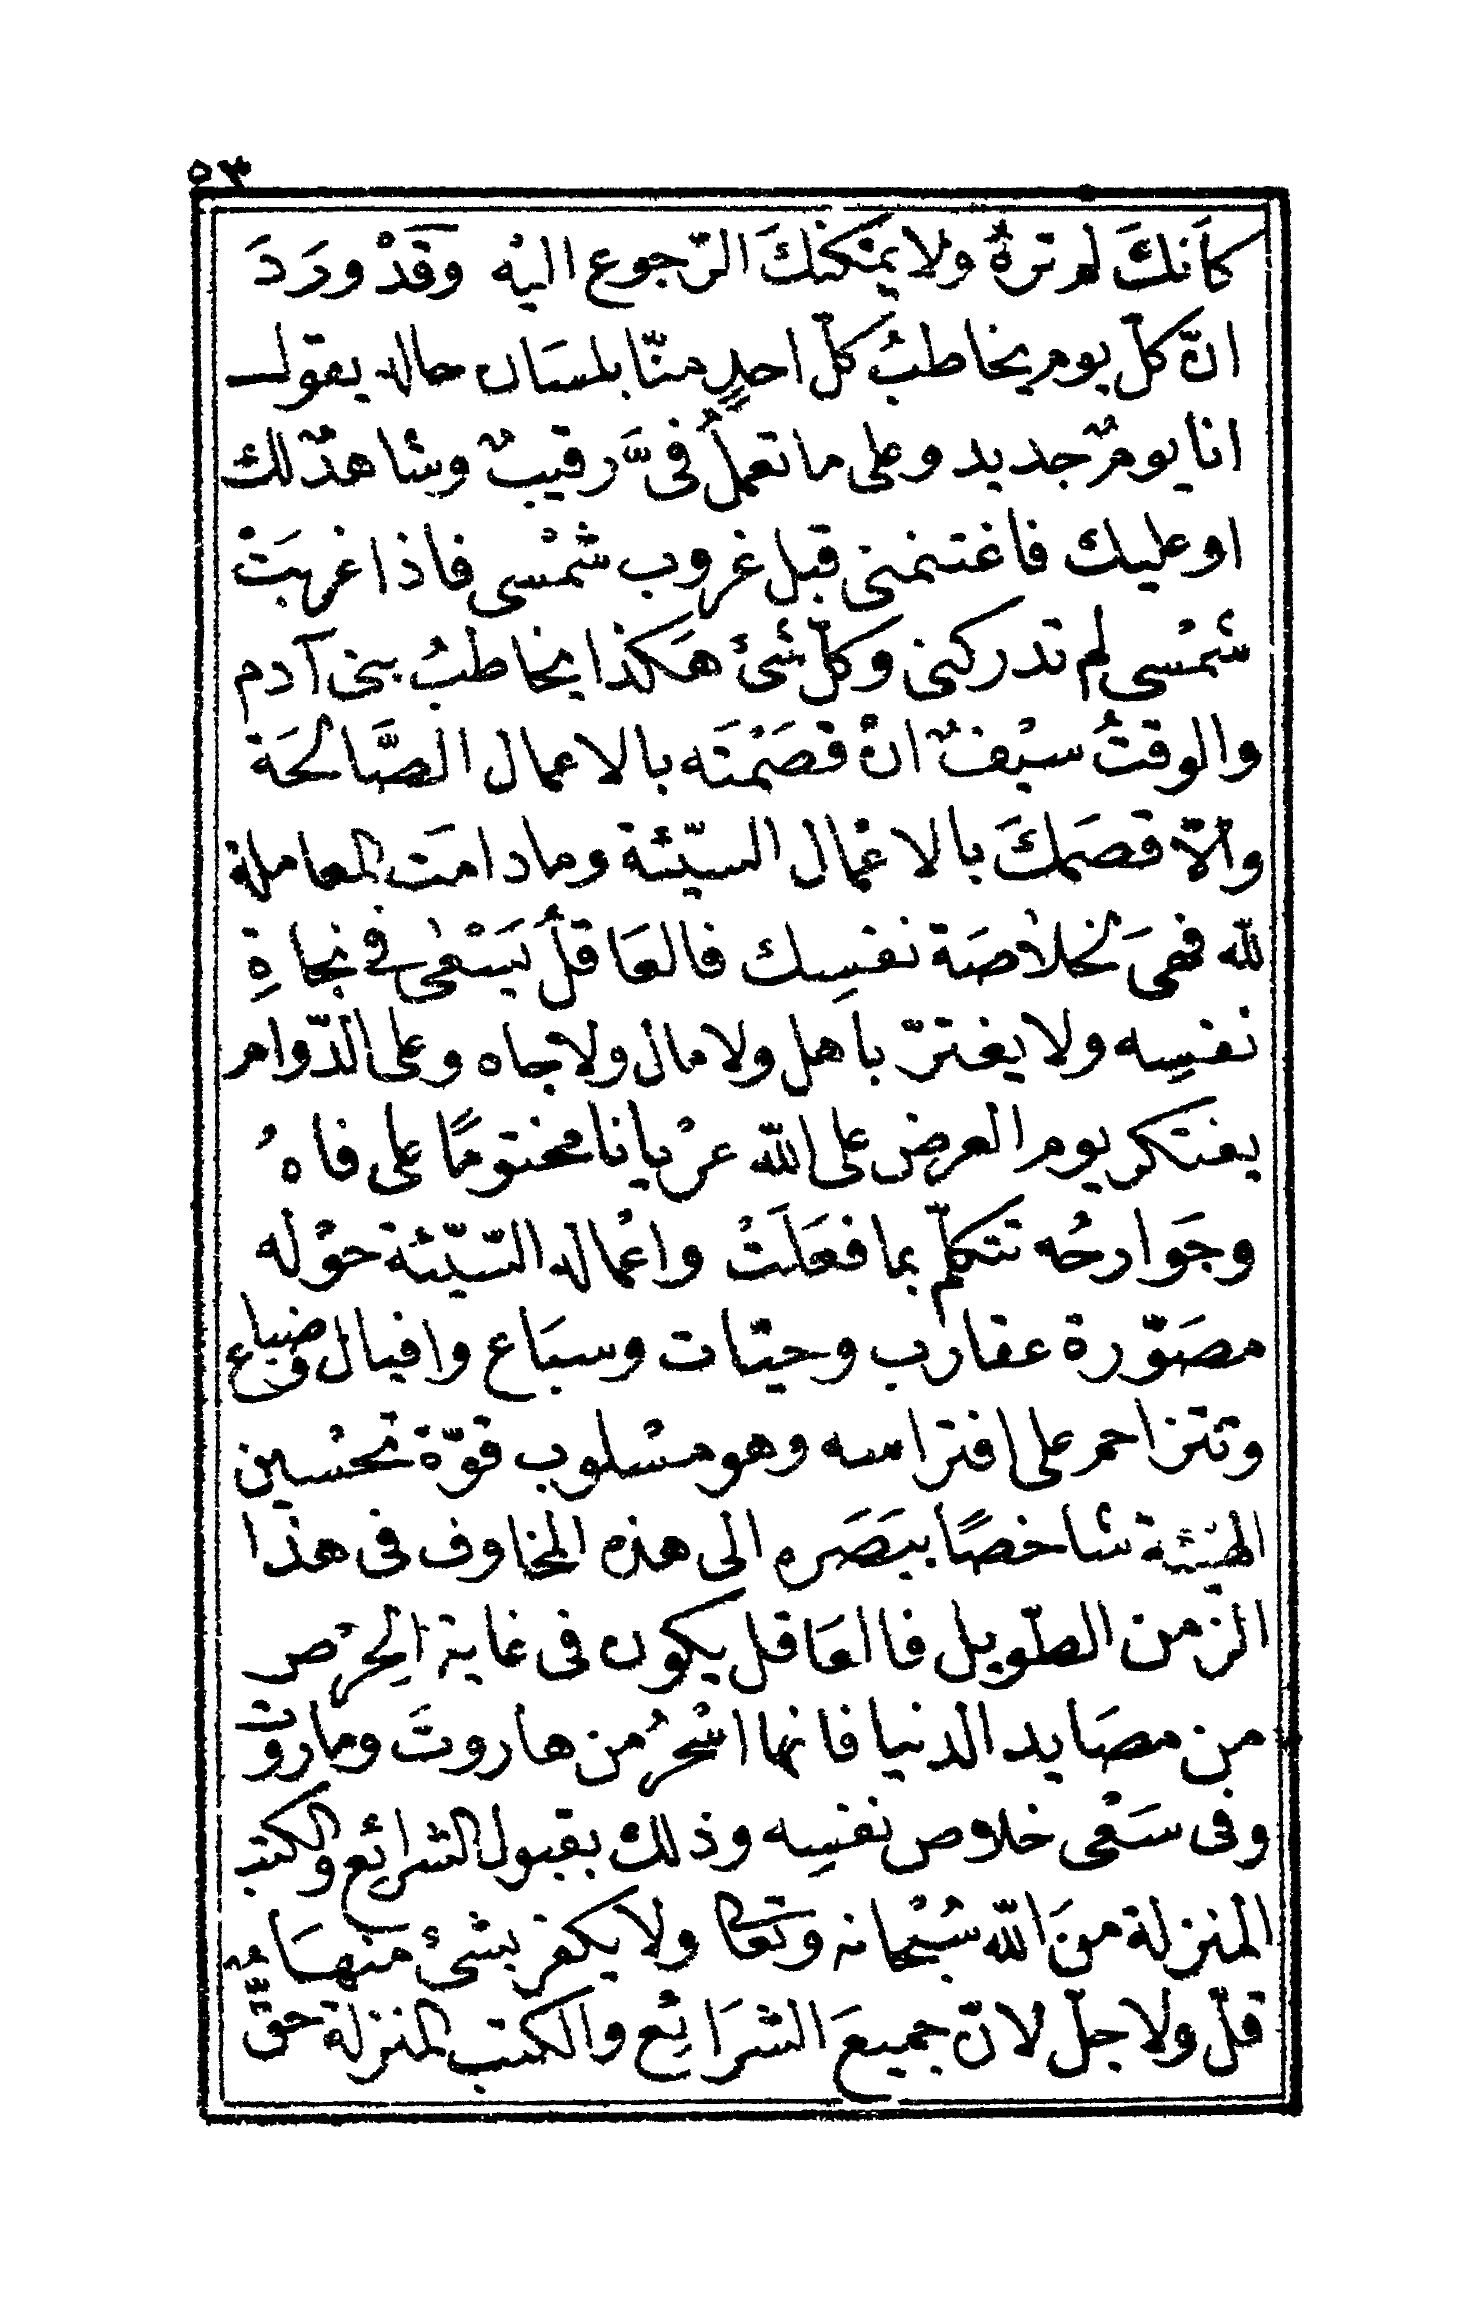 ٥٣
كأنكَ لم ترهُ ولا يمكنكَ الرّجوع اليْه وقدْ ورَدَ
انّ كلّ يوم يخاطبُ كلّ احدٍ منّا بلسَان حاله يقول
انا يومٌ جديد وعلى ما تعملُ فىَّ رقيبٌ وشاهدٌ لك
او عليك فاغتنمنى قبل غروب شمْسى فاذا غربَتْ
شمْسى لم تدركنى وكلّ شئ هَكذا يخاطبُ بنى آدم
والوقتُ سيْفٌ انْ قصَمْتَه بالاعمال الصَّالحَة
والاّ قصَمكَ بالاعمال السيّئة وما دامَت المعاملة
لله فهىَ لخلاصَة نفسِك فالعَاقلُ يَسْعى فى نجاةِ
نفسِه ولا يغترّ باهل ولا مال ولا جاه وعلى الدّوام
يفتكر يوم العرض على الله عرْيانا مختومًا على فاهُ
وجَوارحُه تتكلّم بما فعَلَتْ واعْماله السّيّئة حوْله
مصَوّرة عقارب وحيّات وسبَاع وافيال وضباع
وتتزاحم على افتراسه وهو مسْلوب قوّة تحْسين
الهيئة شاخصًا ببَصَره الى هذه المخاوف فى هذا
الزمن الطّويل فالعَاقل يكون فى غاية الحِرْص
من مصَايد الدنيا فانها اسْحرُ من هاروتَ وماروت
وفى سَعْى خلاص نفسِه وذلك بقبول الشرائع والكتب
المنزلة منَ الله سُبْحانه وتعَالى ولا يكفر بشئ منهَا
قلّ ولا جلّ لانّ جميعَ الشرَائع والكتب المنزلة حقٌّ